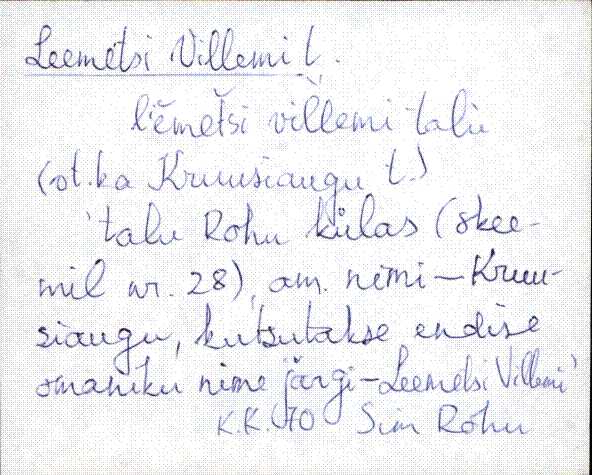 Leemetsi Villemi t.
l'ēmet̆si vil̆lemi talu
(vt. ka Kruusiaugu t.)
talu Rohu külas (skee-
mil nr. 28), am. nimi—Kruu-
siaugu, kutsutakse endise
omaniku nime järgi—Leemetsi Villemi
K.K. 70 Sim Rohu